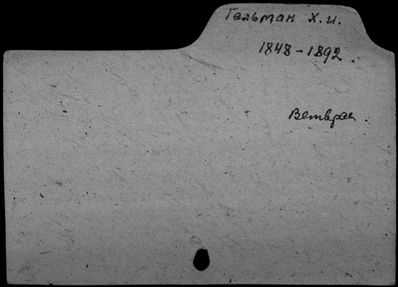 Гельман Х.И.
1848-1892
Ветврач